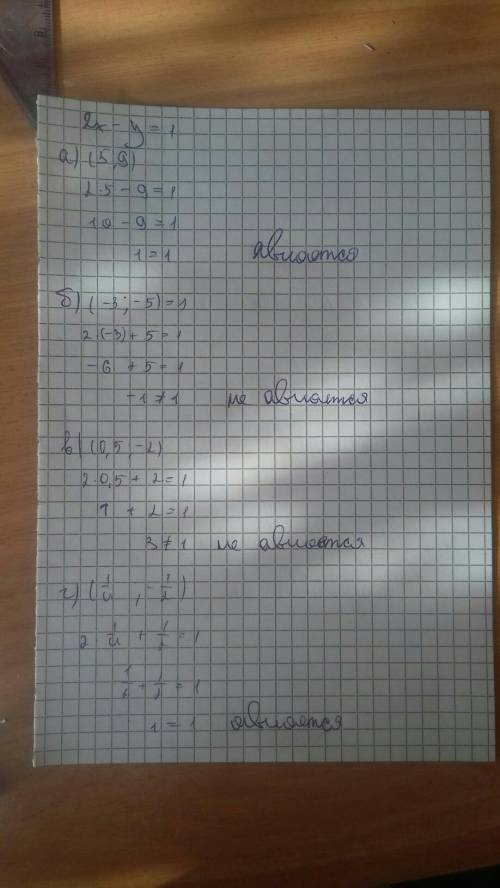 2x - y = 1
а) (5,9)
2·5 - 9 = 1
10 - 9 = 1
1 = 1 авиается
б) (-3; -5) = 1
2·(-3) + 5 = 1
-6 + 5 = 1
-1 ≠ 1 не авиается
в) (0,5; -2)
2·0,5 + 2 = 1
1 + 2 = 1
3 ≠ 1 не авиается
г) (1/4; -1/2)
2·1/4 + 1/2 = 1
1/2 + 1/2 = 1
1 = 1 авиается